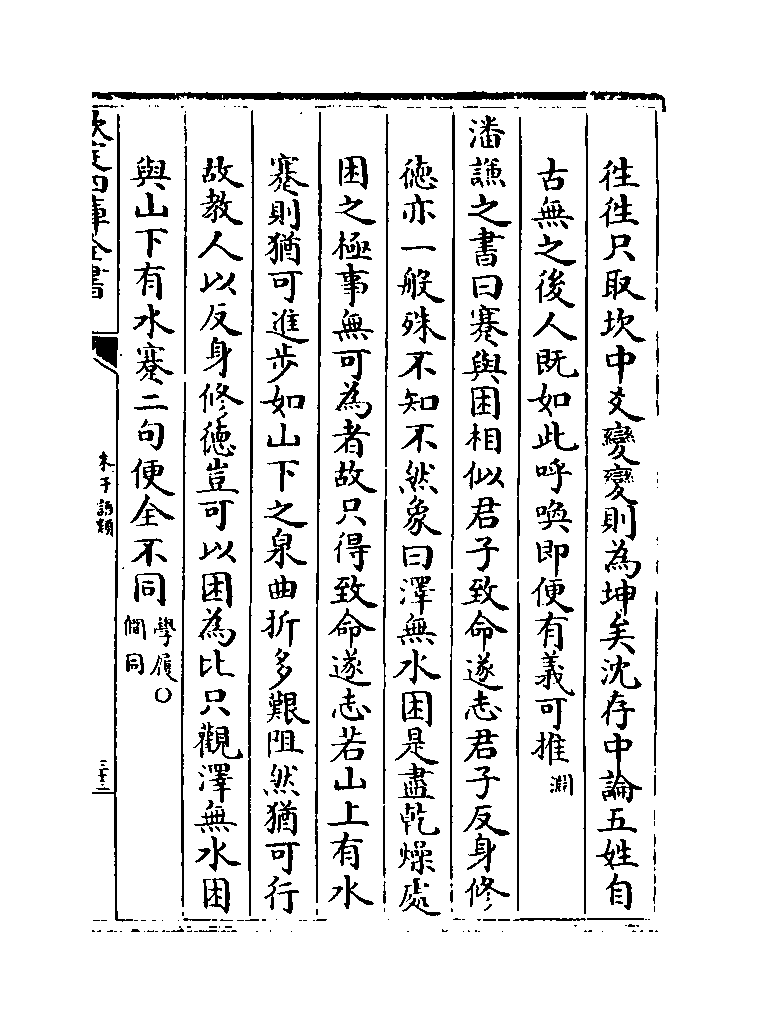 徃徃只取坎中爻變變則為坤矣沈存中論五姓自
古無之後人既如此呼喚即便有義可推淵
潘謙之書曰蹇與困相似君子致命遂志君子反身修
徳亦一般殊不知不然象曰澤無水困是盡乾燥處
困之極事無可為者故只得致命遂志若山上有水
蹇則猶可進步如山下之泉曲折多艱阻然猶可行
故教人以反身修徳豈可以困為比只觀澤無水困
與山下有水蹇二句便全不同學履○
僩同
欽定四庫全書
朱子語類
三十三